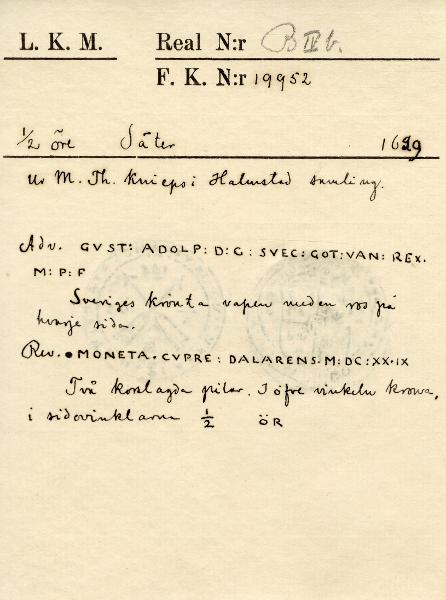 L. K. M. Real N:r B IV b.
F. K. N:r 19952
1/2 öre Säter 1629
Ur M. Th. Knieps i Halmstad samling.
Adv. GVST: ADOLP: D: G: SVEC: GOT: VAN: REX.
M: P: F
Sveriges krönta vapen med en ros på
hvarje sida.
Rev. • MONETA. CVPRE: DALARENS. M: DC: XX. IX
Två korslagda pilar. I öfre vinkeln krona,
i sidovinklarna 1/2 ÖR